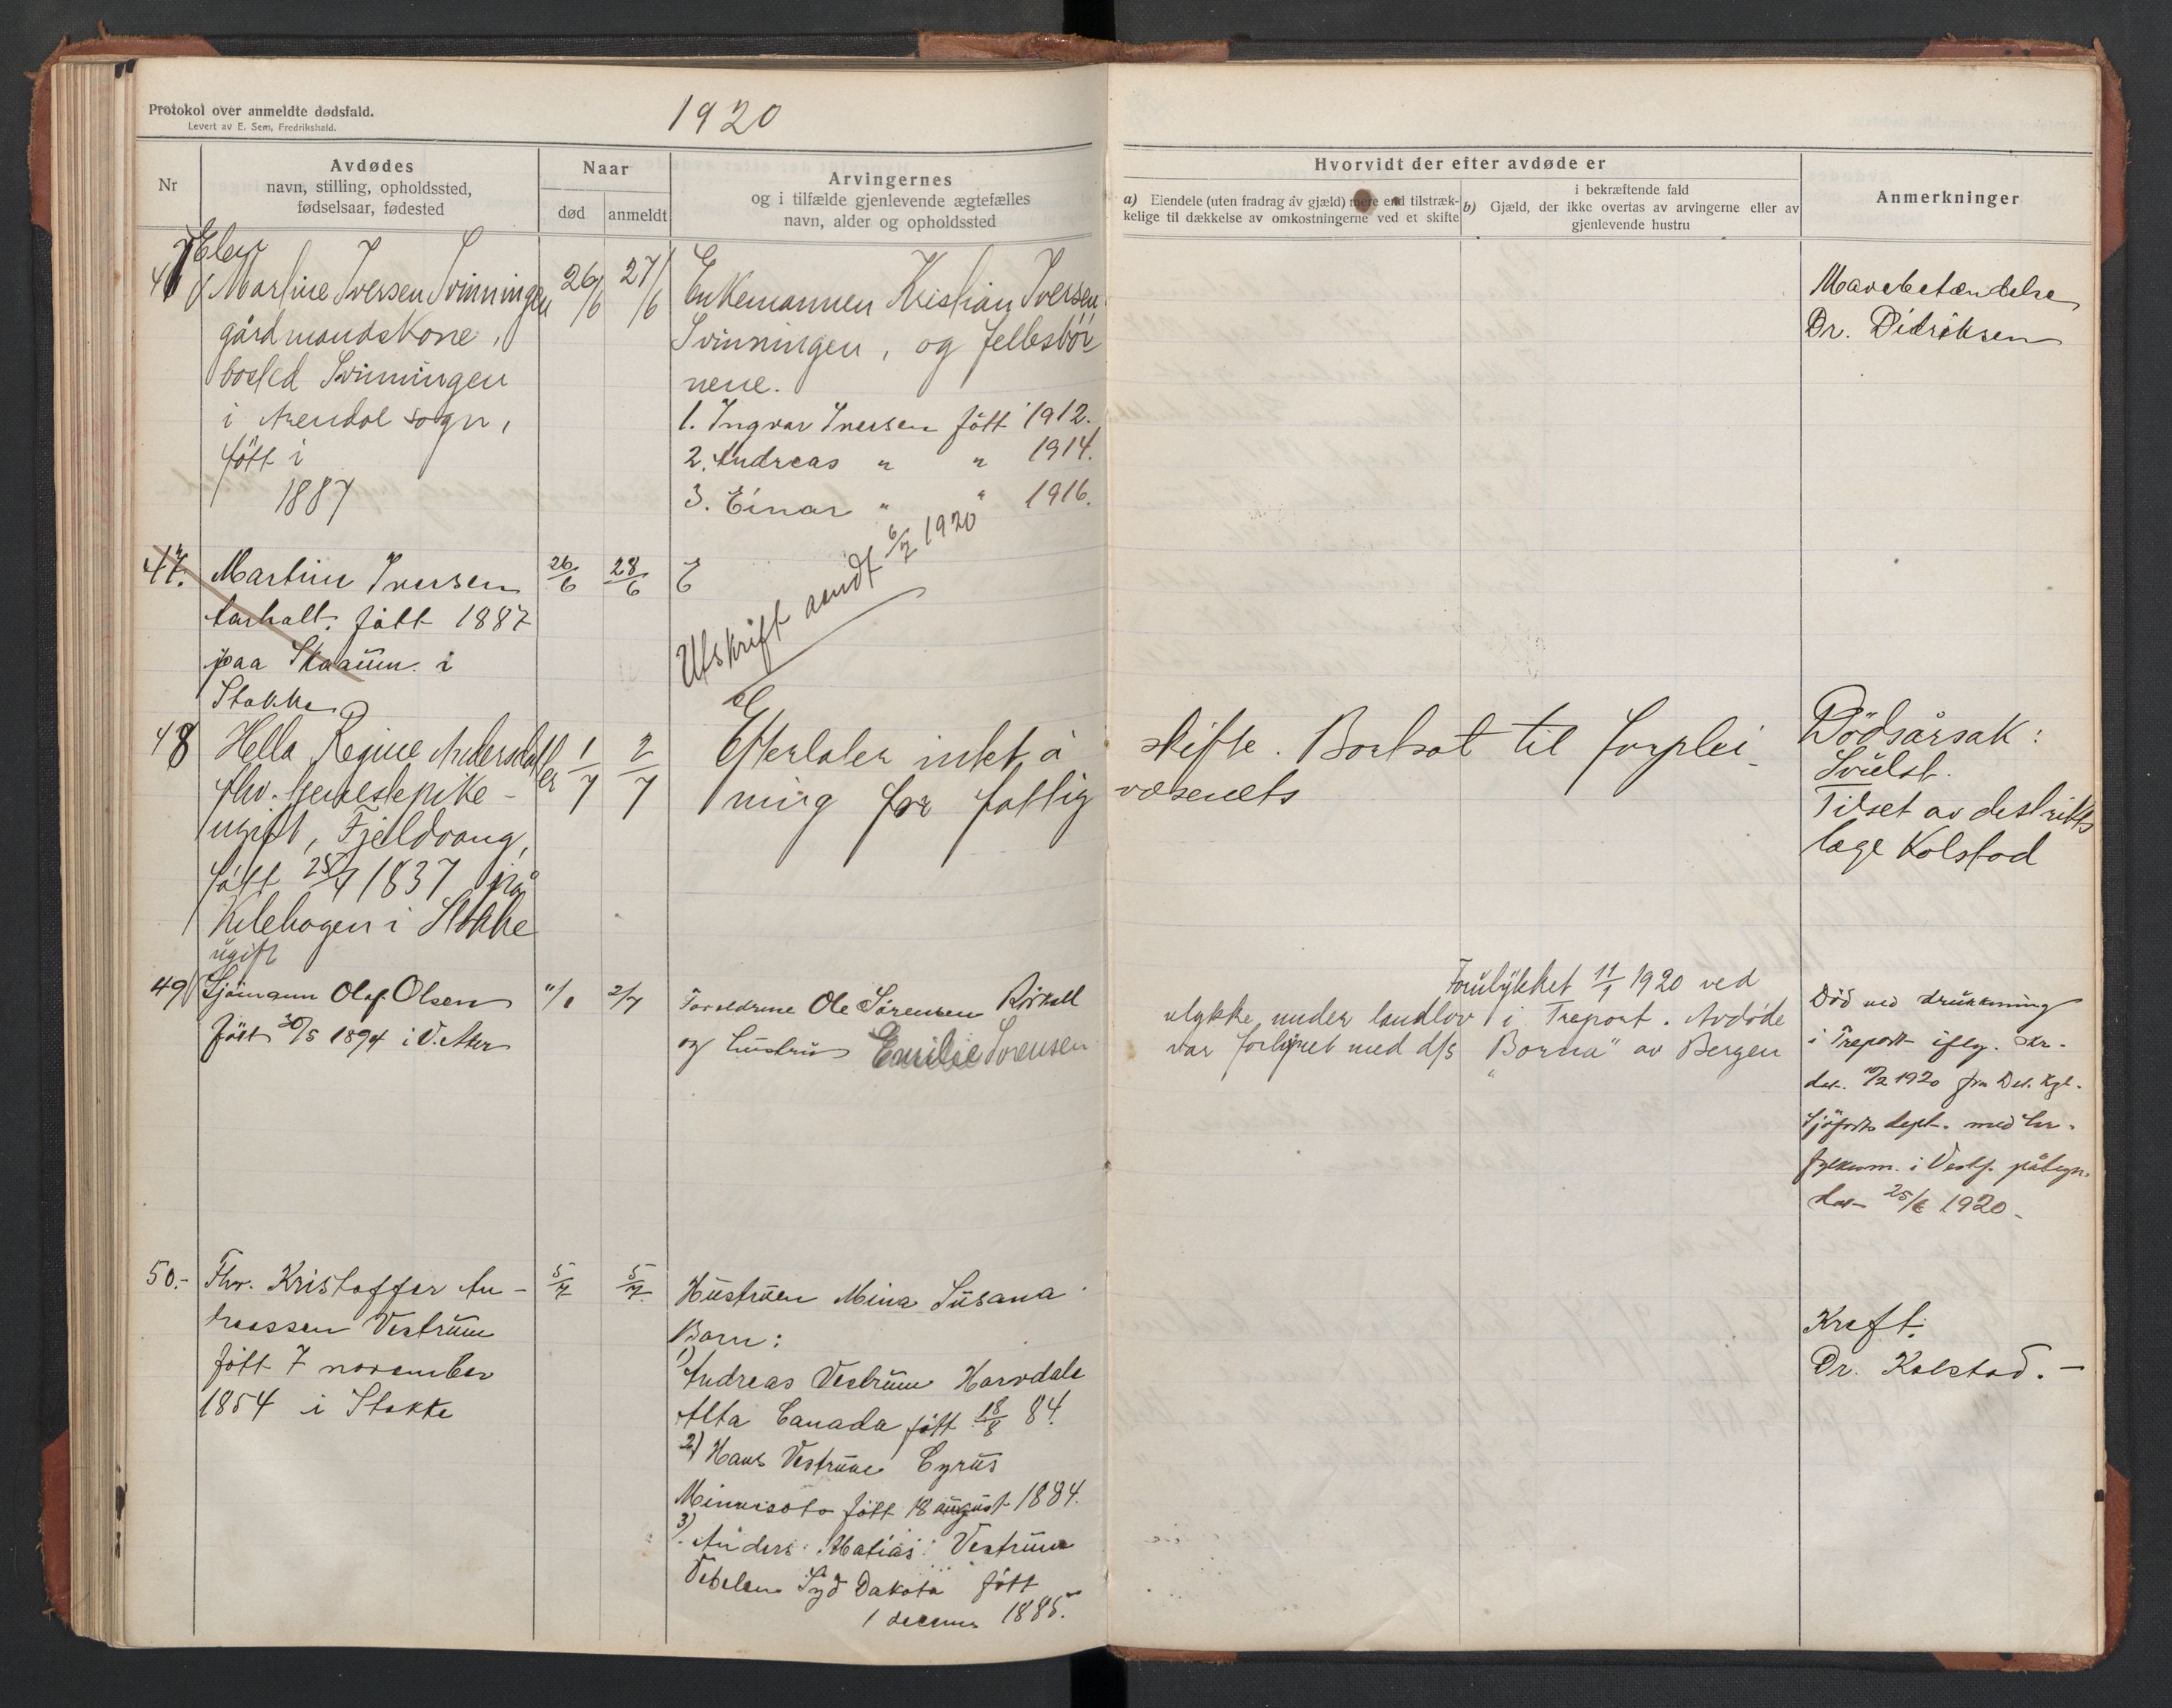 Protokol over anmeldte dødsfald.
Levert av E. Sem, Fredrikshald.
1920
Nr
Avdødes
navn, stilling, opholdssted,
fødselsaar, fødested
Naar
død
anmeldt
Arvingernes
og i tilfælde gjenlevende ægtefælles
navn, alder og opholdssted
Hvorvidt der efter avdøde er
a) Eiendele (uten fradrag av gjæld) mere end tilstræk-
kelige til dækkelse av omkostningerne ved et skifte
i bekræftende fald
b) Gjæld, der ikke overtas av arvingerne eller av
gjenlevende hustru
Anmerkninger
Martine Iversen Svinningen
gårdmandskone,
bosted Svinningen
i Arendal sogn,
født i
1887
26/6
27/6
Enkemannen Kristian Iversen
Svinningen, og fellesbør
nene.
1. Ingvar Iversen født 1912.
2. Andreas " " 1914.
3. Einar " " 1916.
Mavebetændelse
Dr. Didriksen
47.
Martine Iversen
født 1887
paa i
Stokke
26/6
28/6
E
Utskrift sendt 6/7 1920
48
Hella Regine Andersdatter
fhv. tjenestepike -
ugift, Fjeldvang,
født 25/4 1837 på
Kilehagen i Stokke
1/7
2/7
Efterlater intet å skifte. Bortsat til forplei-
ning for fattigvæsenets
Dödsårsak:
Svulst.
Tilset av distrikts
læge Kolstad
49
ugift
Sjömann Olaf Olsen
født 30/5 1894 i V. Aker
11/1
2/7
Foreldrene Ole Sörensen
og hustru Emilie Sorensen
Forulykket 11/1 1920 ved
ulykke under landlov i Treport. Avdöde
var forhyret med d/s "Borna" av Bergen
Död ved drukkning
i Treport ifлg. skr.
dat. 10/2 1920 fra Det Kgl.
Sjöfarts dept. med hr.
fylkesm. i Vestf. påtegn.
dat 25/6 1920.
50.-
Fhv. Kristoffer An-
dreassen Vestrum
født 7 november
1854 i Stokke
5/7
5/7
Hustruen Mina Susana
Barn:
1) Andreas Vestrum Harvdale
Alta Canada født 18/8 84.
2) Hans Vestrum Cyrus
Minnisota født 18 august 1884.
3). Anders Matias Vestrum
Vebelen Syd Dakota født
1 decem 1885.
Kreft.
Dr. Kolstad. -